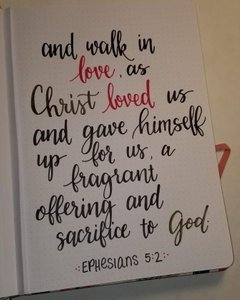 and walk in
love, as
Christ loved us
and gave himself
up for us, a
fragrant
offering and
sacrifice to God.
:EPHESIANS 5:2: